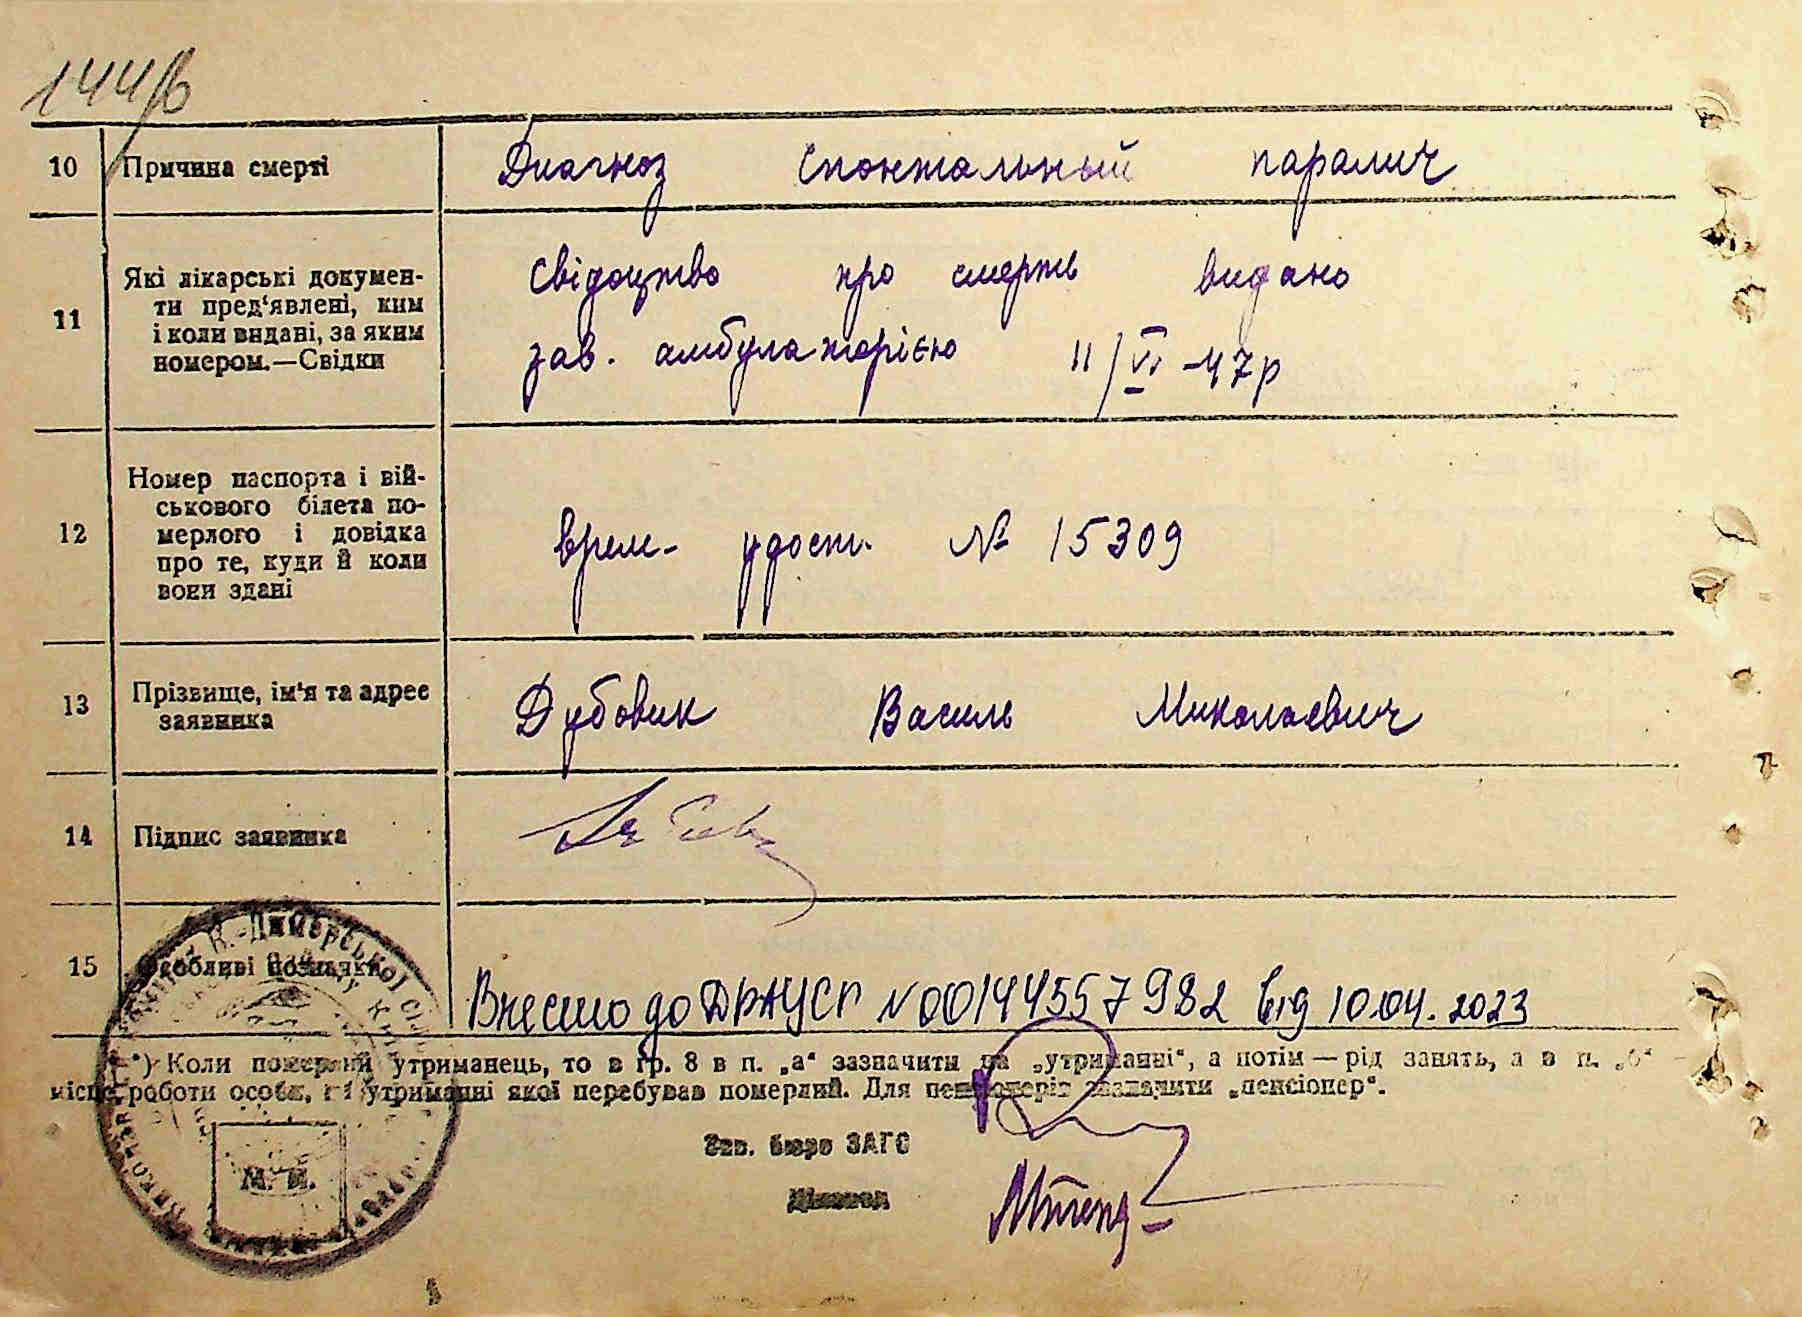 144/в
10 Причина смерті Диагноз Спонтальный паралич
11 Які лікарські докумен-
ти пред'явлені, ким
і коли видані, за яким
номером.—Свідки
Свідоцтво про смерть видано
зав. амбулаторією 11/VI-47р
12 Номер паспорта і вій-
ськового білета по-
мерлого і довідка
про те, куди й коли
вони здані
врем. удост. № 15309
13 Прізвище, ім'я та адрес
заявника
Дубовик Василь Миколаєвич
14 Підпис заявника
15 Особливі позначки
Внесено до ДРАЦСГ №00144557982 від 10.04.2023
*) Коли померлий утриманець, то в гр. 8 в п. „а" зазначити на „утриманні", а потім — рід занять, а в п. „б" —
місце роботи особи, на утриманні якої перебував померлий. Для пенсіонерів зазначити „пенсіонер".
Зав. бюро ЗАГС
Діловод
М. П.